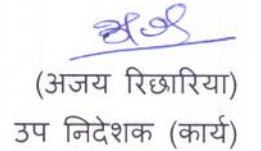 (अजय रिछारिया)
उप निदेशक (कार्य)